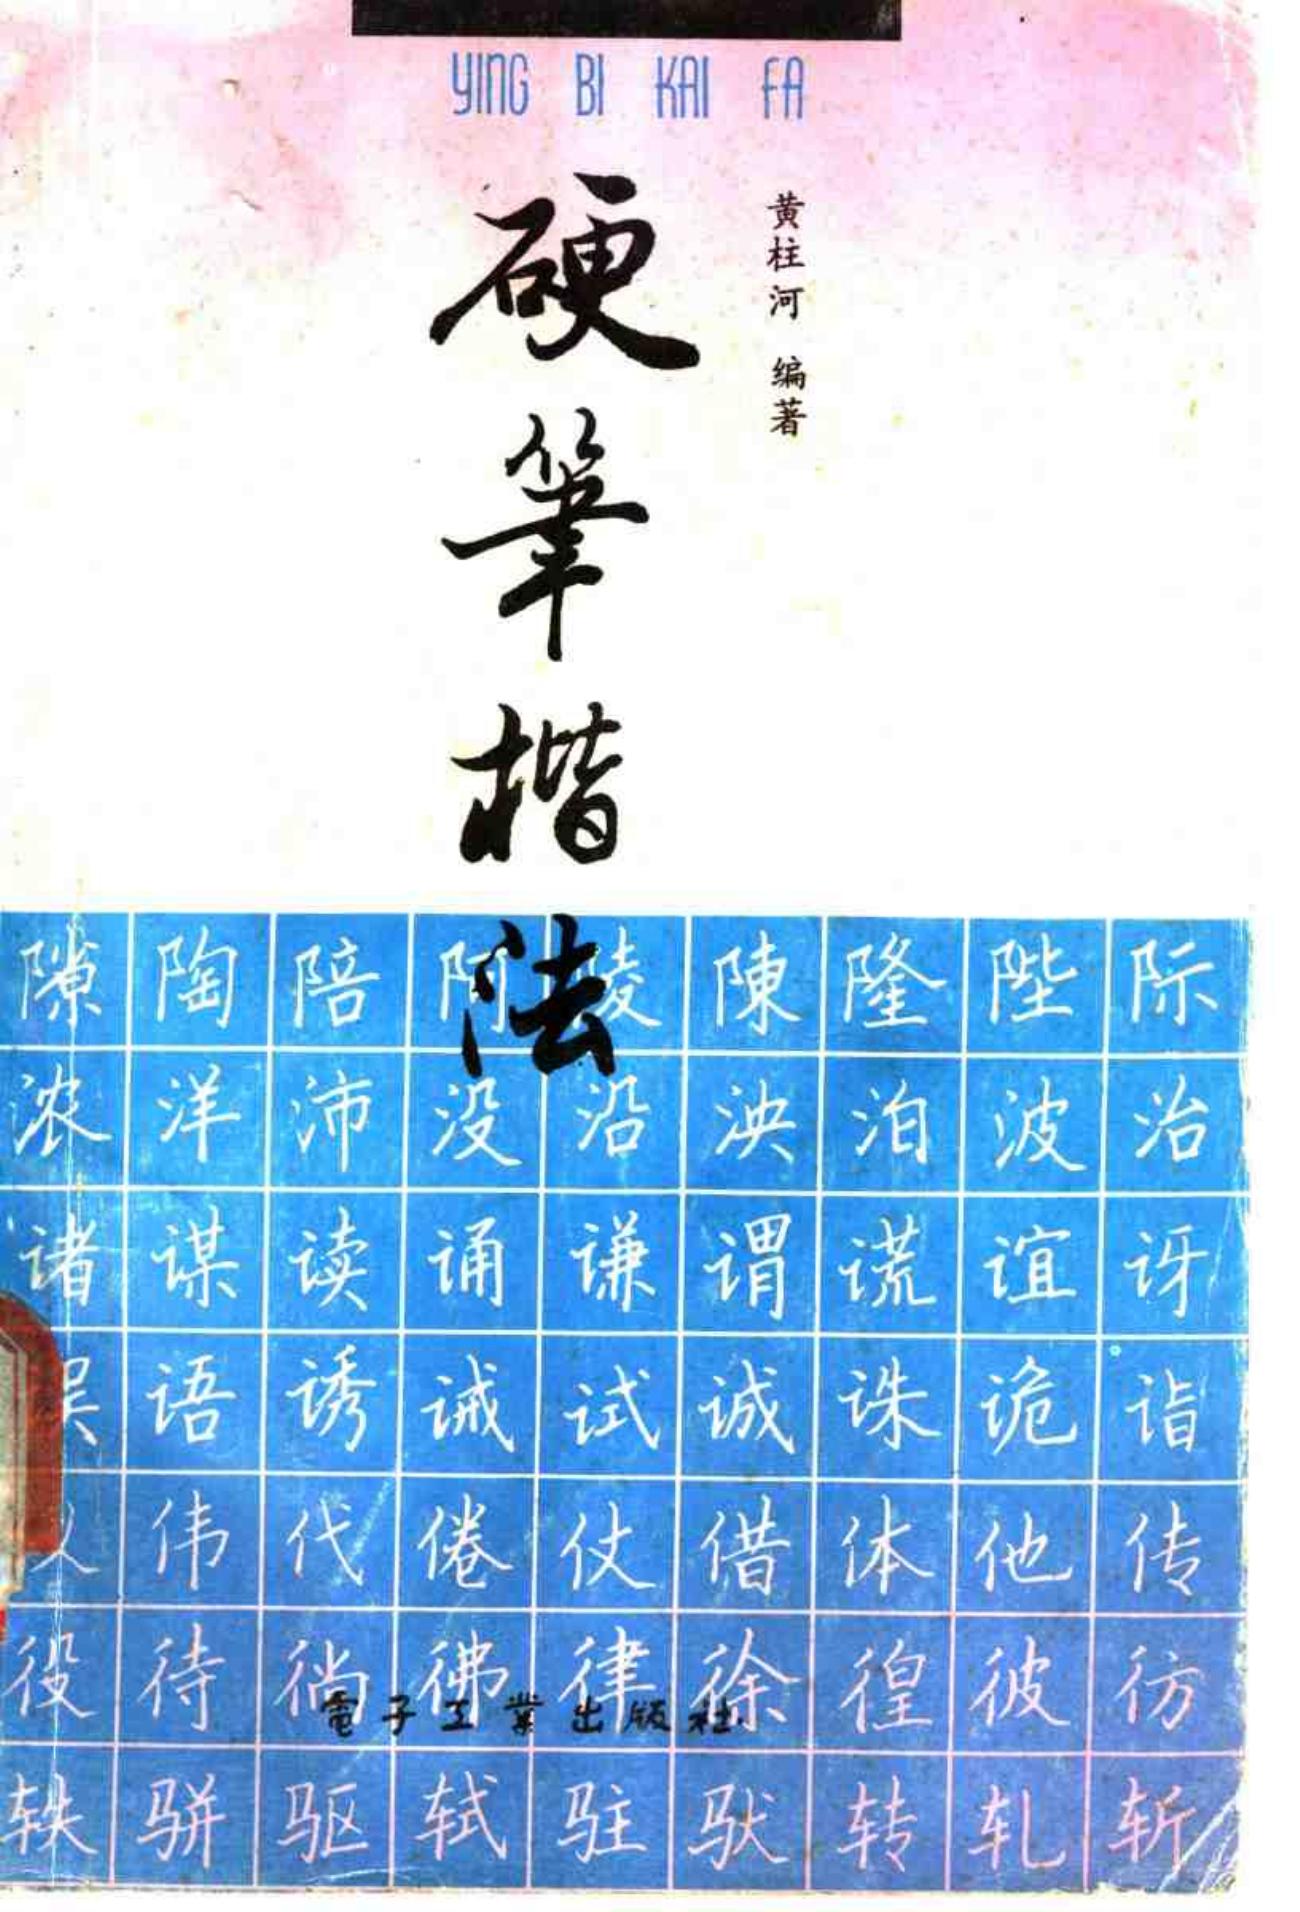 YING BI KAI FA
硬筆楷法
黄柱河 编著
隙陶陪阿陵陳隆陛际
浓洋沛没沿泱泊波治
诸谋读诵谦谓谎谊讶
语诱诫试诚诛诡诣
伟代倦仗借体他传
役待徜彿律徐徨彼彷
電子工業出版社
轶骈驱轼驻驮转轧斩